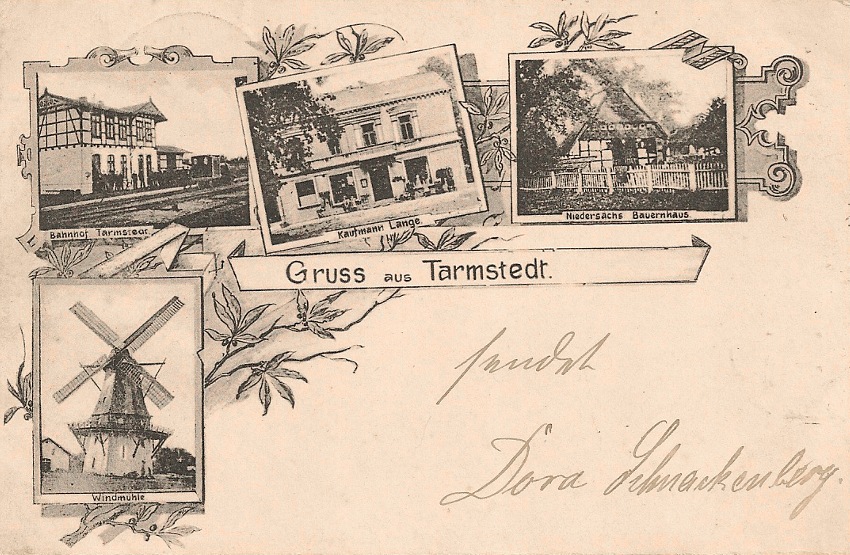 Bahnhof Tarmstedt.
Kaufmann Lange
Niedersächs Bauernhaus
Gruss aus Tarmstedt.
Windmühle
sendet
Dora Schnackenberg.